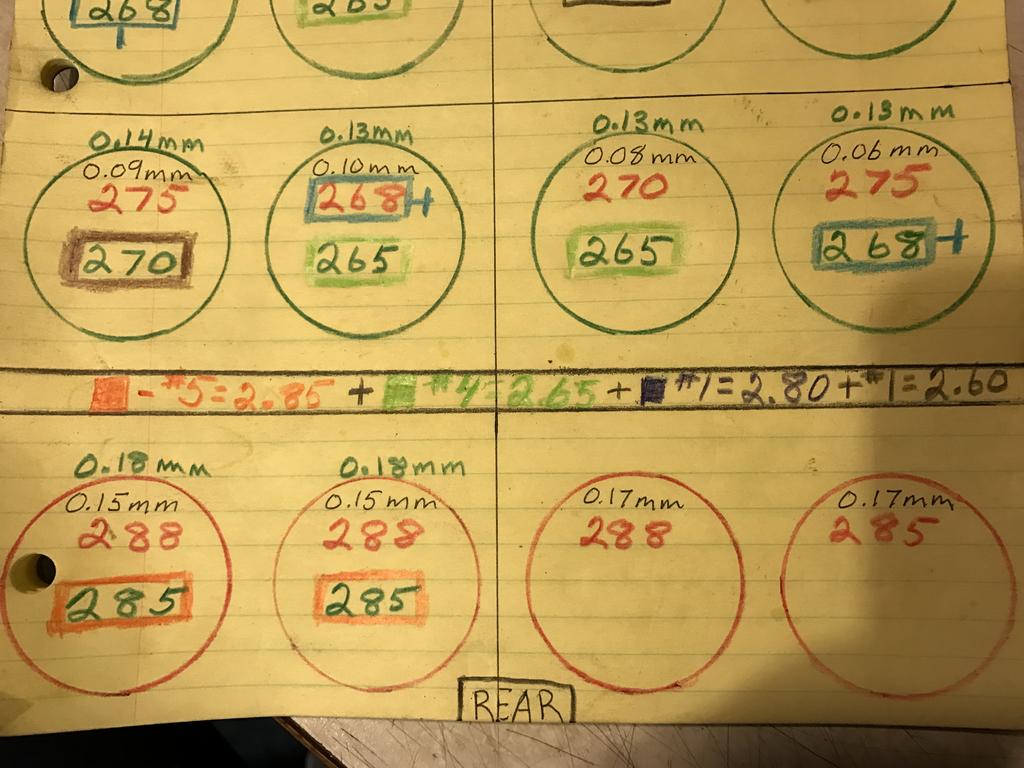 268 265
0.14mm 0.13mm 0.13mm 0.13mm
0.09mm 0.10mm 0.08mm 0.06mm
275 268+ 270 275
270 265 265 268+
- #5=2.85 + #4=2.65 + #1=2.80 + #1=2.60
0.18mm 0.18mm
0.15mm 0.15mm 0.17mm 0.17mm
288 288 288 285
285 285
REAR